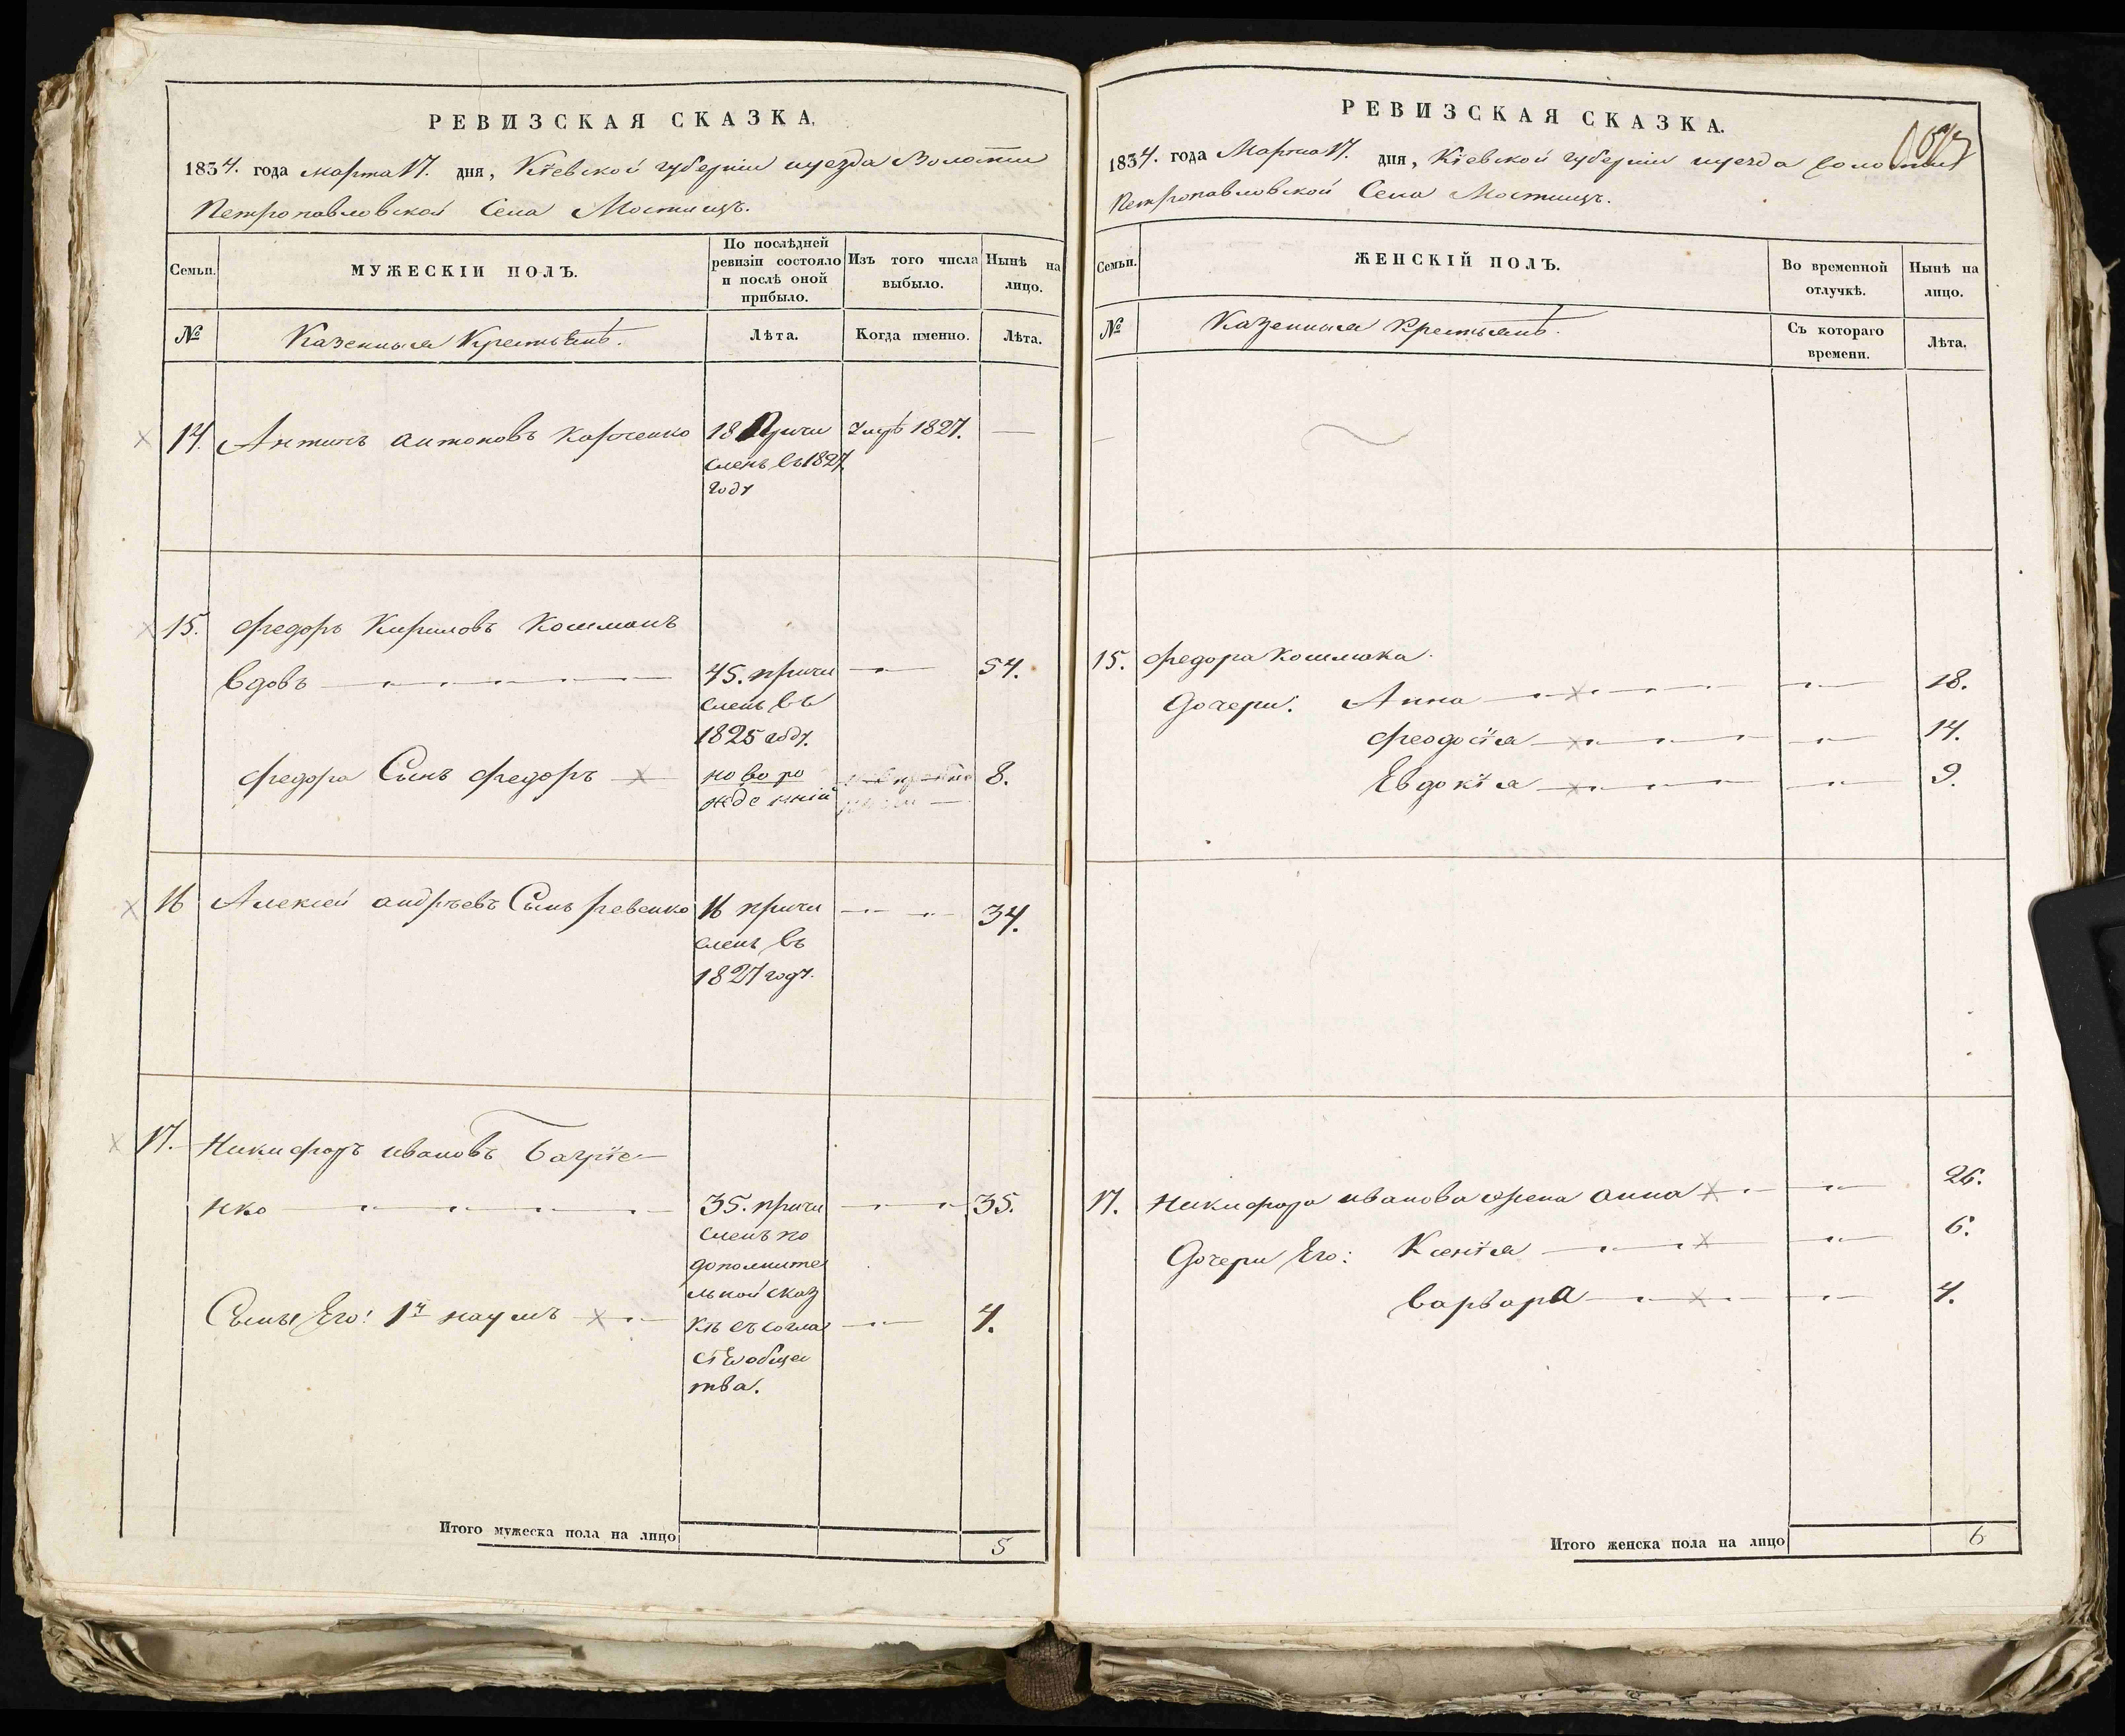 РЕВИЗСКАЯ СКАЗКА.
1834. года марта 17. дня, Кіевской губерніи и уезда Волости
Петропавловской Села Мостищъ.
Семьи.
МУЖЕСКІЙ ПОЛЪ.
По послѣдней
ревизіи состояло
и послѣ оной
прибыло.
Изъ того числа
выбыло.
Нынѣ на
лицо.
№
Казенныя Крестьянѣ.
Лѣта.
Когда именно.
Лѣта.
14. Антинъ антоновъ Карченко 18 Причи 1827. —
сленъ въ 1827
году
15. Федоръ Кириловъ Кошманъ
вдовъ 45. причи — 54.
сленъ въ
1825 году.
Федора Сынъ Федоръ новоро 8.
жденній
16 Алексей андрѣевъ Сынъ ревенко 16 причи — 34.
сленъ въ
1827 году.
17. Никифоръ ивановъ Багріе-
нко 35. причи — 35.
сленъ по
дополните
льной сказ
Сынъ Его: 1й наумъ кѣ съ соглас — 4.
общес
тва.
Итого мужеска пола на лицо 5
РЕВИЗСКАЯ СКАЗКА.
1834. года Марта 17. дня, Кіевской губерніи и уезда волости
Петропавловской Села Мостищъ.
Семьи.
ЖЕНСКІЙ ПОЛЪ.
Во временной
отлучкѣ.
Нынѣ на
лицо.
№
Казенныя Крестьянѣ.
Съ котораго
времени.
Лѣта.
15. Федора Кошмака
Дочери: Анна — 18.
Феодосія — 14.
Евдокія — 9.
17. Никифора иванова жена анна — 26.
Дочери Его: Ксенія — 6.
варвара — 4.
Итого женска пола на лицо 6